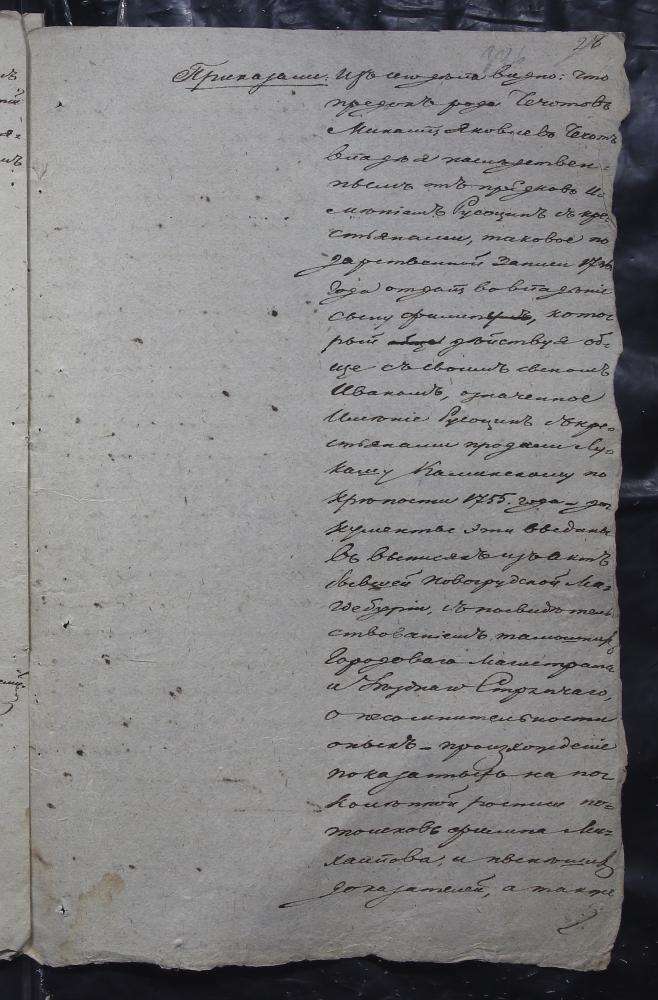 28
Приказали: Изъ сего дѣла видно: что
предокъ рода Чечотовъ
Михаилъ Яковлевъ Чечотъ
владѣя наслѣдствен-
нымъ отъ предковъ И-
мѣніемъ Русоцинъ съ кре-
стьянами, таковое по
дарственной Записи 1736
года отдалъ во владѣніе
сыну Филипу, кото
рый дѣйствуя об-
ще съ своимъ сыномъ
Иваномъ, означенное
Имѣніе Русоцинъ съ кре-
стьянами продали Лу-
кашу Каминскому по
крѣпости 1755. года – до
кументы эти введены
въ выписяхъ изъ Актъ
бывшей Новогрудской Ма-
гдебургіи, съ посвидѣтель
ствованіемъ тамошняго
Городоваго Магистрата
и Уѣзднаго Стряпчаго,
о несомнительности
оныхъ – произхожденіе
показанныхъ на по
колѣнной росписи по-
томковъ Филипа Ми-
хайлова, и нынѣшнихъ
доказателей, а также